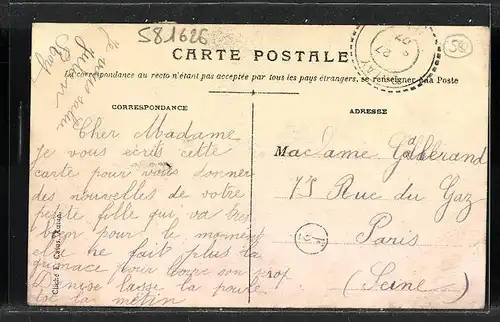 581626
58
27
07
CARTE POSTALE
La correspondance au recto n'étant pas acceptée par tous les pays étrangers, se renseigner à la Poste
CORRESPONDANCE
ADRESSE
Je vous salue
Cher Madame
je vous ecrits cette
carte pour vous donner
des nouvelles de votre
petite fille qui va tres
bien pour le moment
elle ne fait plus la
grimace pour boire son
Denise lasse la poule
le matin
Madame Galberand
75 Rue du Gaz
Paris
(Seine)
Cliché E.